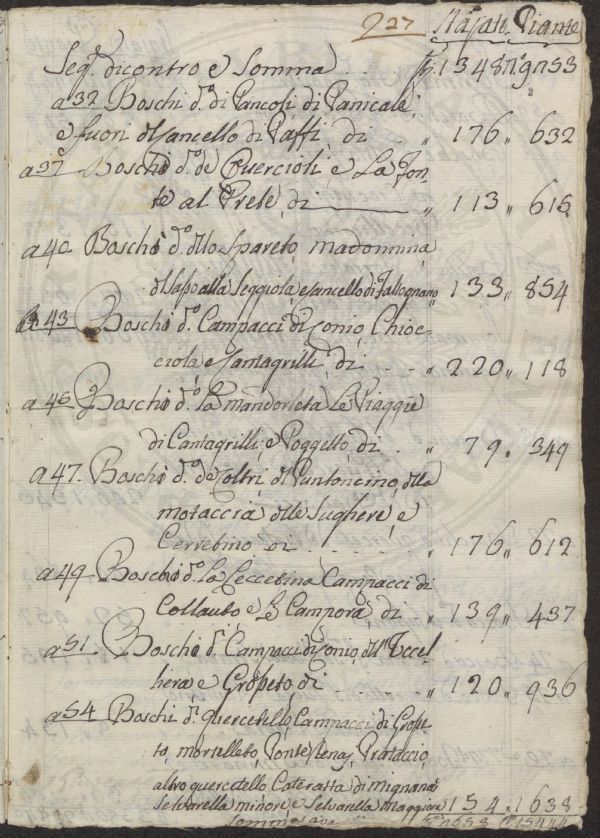 227 Stajate Piante
Seg.e dicontro e Somma . . . 1348 9753
a 32 Boschi d.i di Pancoli di Panicale
e fuori di Cancello di Paffi, di . . „ 176 „ 632
a 37 Boschi d.i de Quercioli e La Fon-
te al Prete, di „ 113 „ 616
a 40 Boschi d.i dello Spareto, madonnina
alla Seggiola, e Cancello di Falcignano „ 133 „ 854
a 43 Boschi d.i Campacci di Conio, Chioc-
ciola, e Cantagrilli, di . . . „ 220 „ 118
a 46 Boschi d.i la mandorleta Le Piaggie
di Cantagrilli, e Poggetto, di . . „ 79 „ 349
a 47. Boschi d.i de Coltri, di Puntoncino, della
motaccia delle Sughere, e
Cerretino, di . . . . . . „ 176 „ 612
a 49 Boschi d.i la Leccetina Campacci di
Collauto, e le Campora, di . „ 139 „ 437
a 51 Boschi d.i Campacci di Conio, dell' Uccel-
liera e Gropeto, di . . . . . „ 120 „ 936
a 54 Boschi d.i quercetello, Campacci di Grope-
to, mortelleto, Ponte Renaj, Prataccio,
altro quercetello Cateratta di mignana
Selvarella minore, e Selvarella maggiore 154 „ 1638
Somma